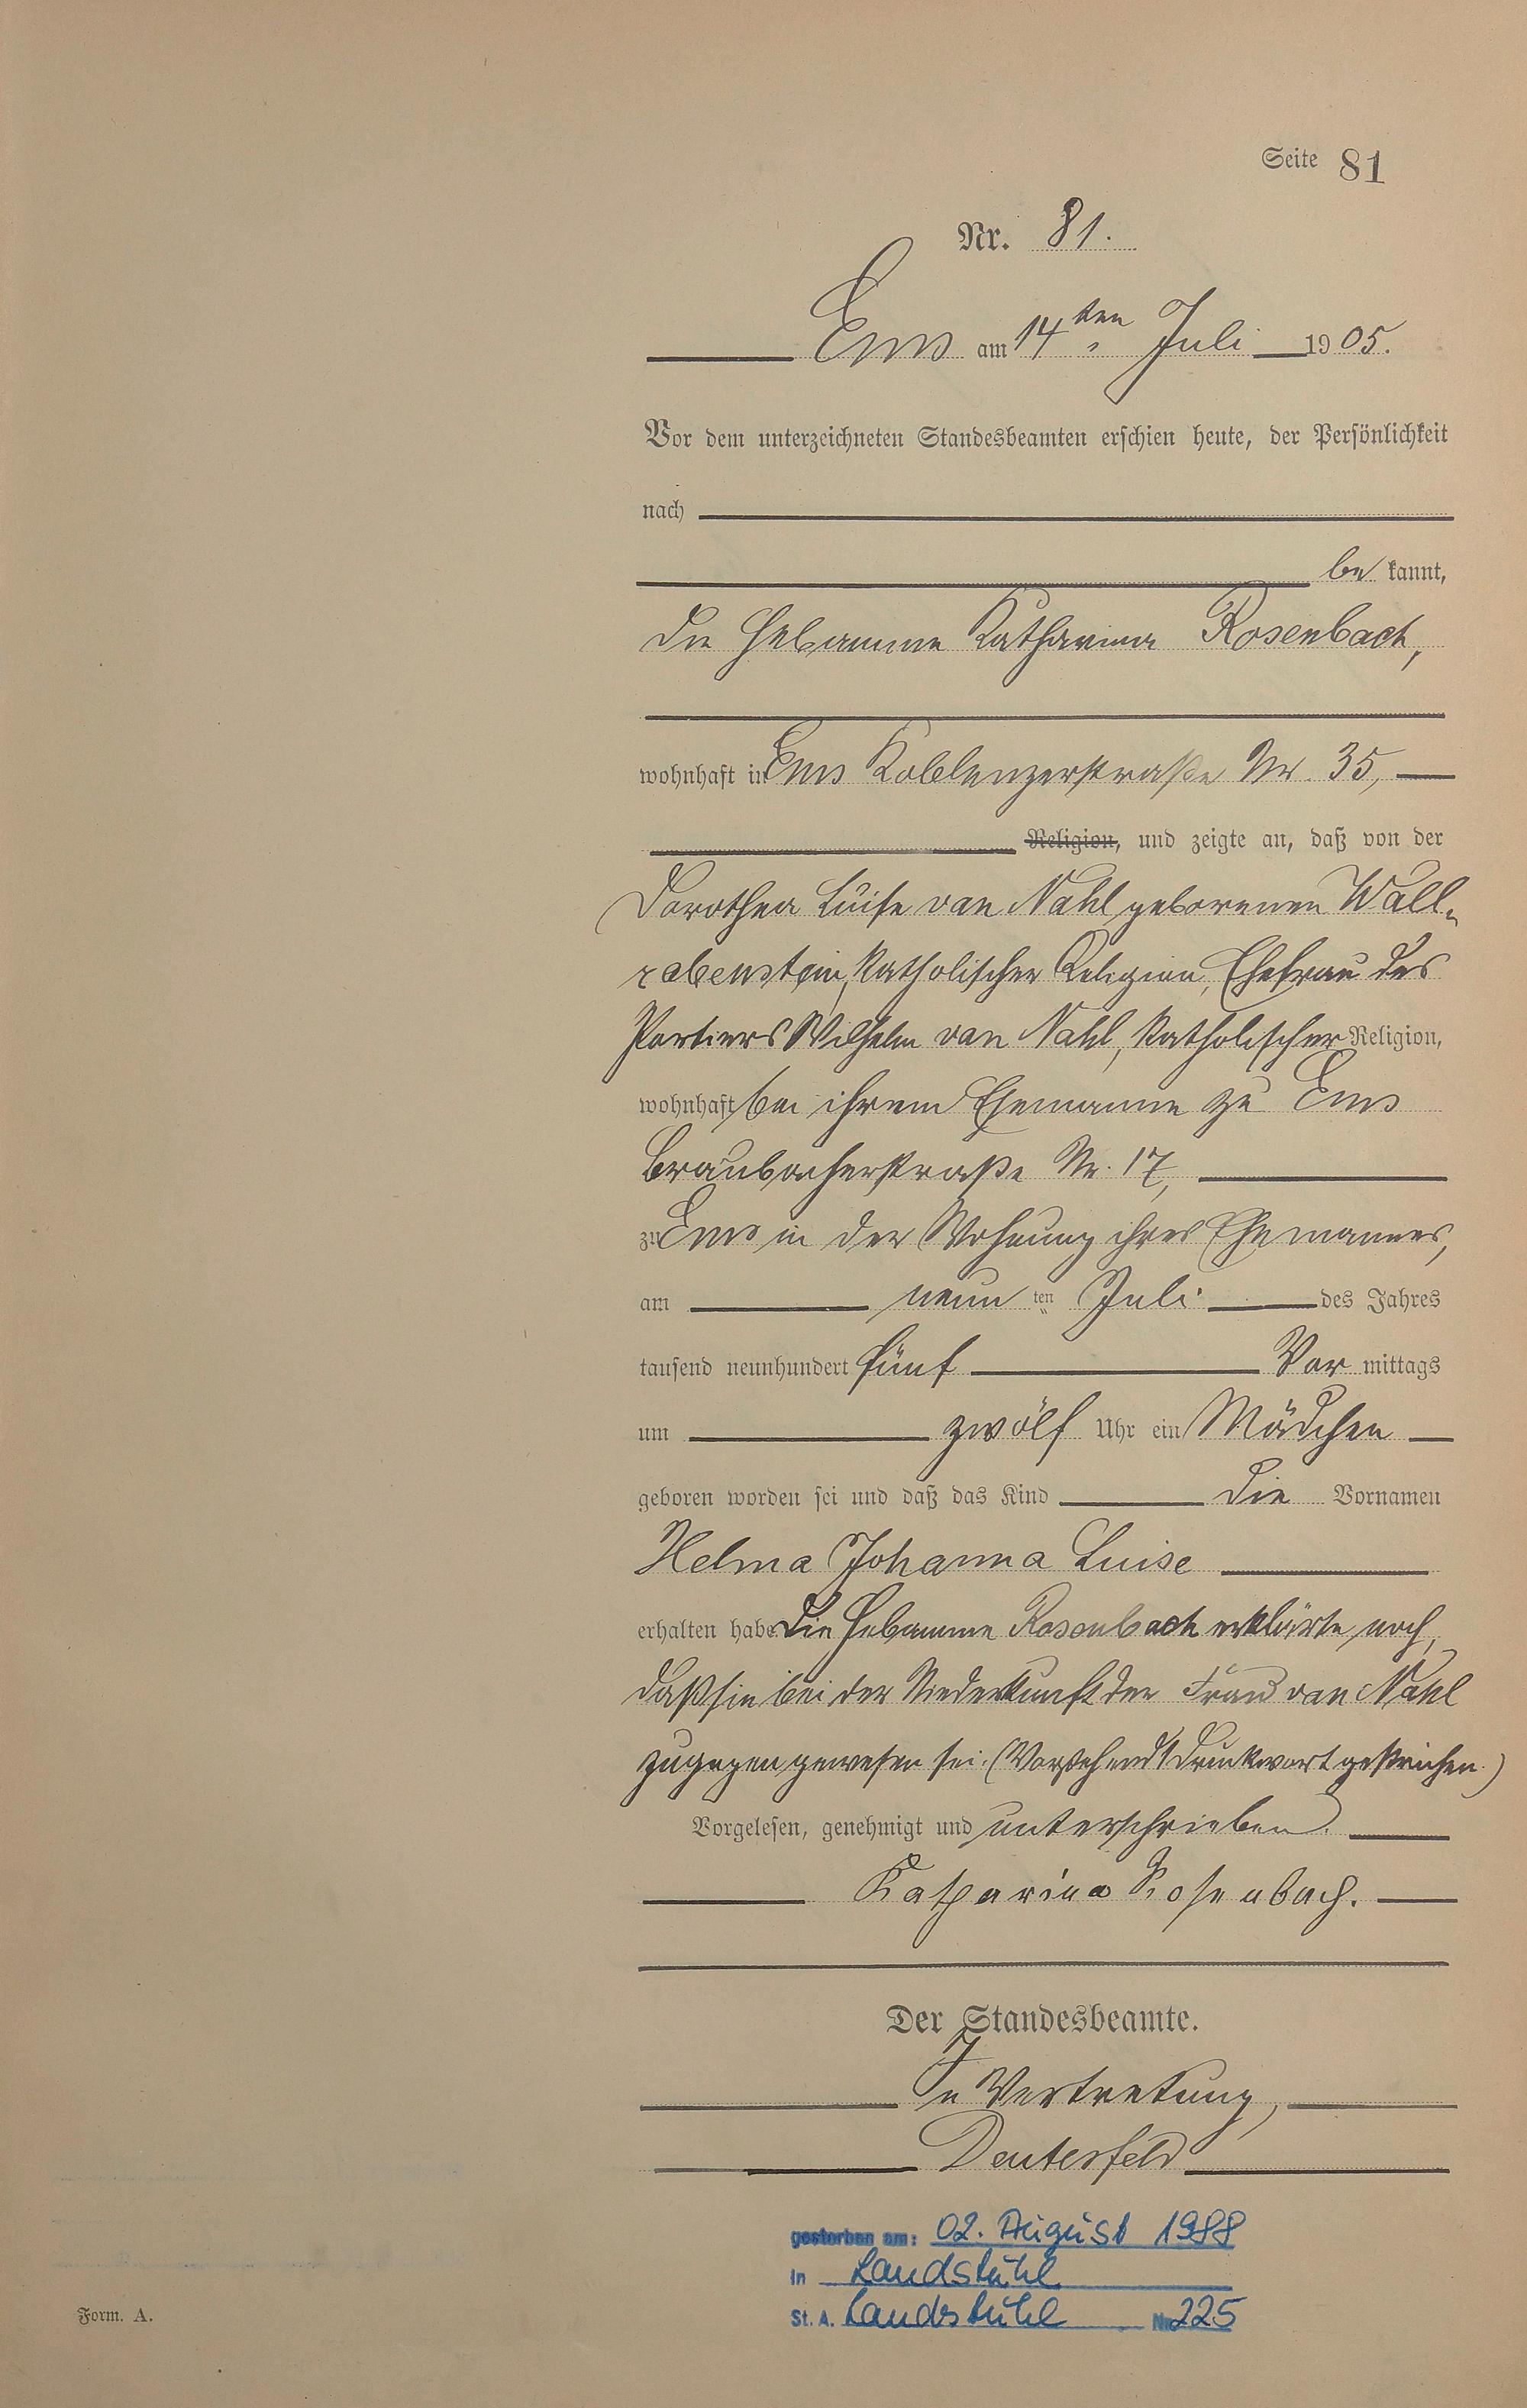 Seite 81
Nr. 81.
Ems am 14ten Juli 1905.
Vor dem unterzeichneten Standesbeamten erschien heute, der Persönlichkeit
nach
be kannt,
die Hebamme Katharina Rosenbach,
wohnhaft in Ems Koblenzerstraße Nr. 35,
Religion, und zeigte an, daß von der
Dorothea Luise van Nahl geborenen Wall-
rabenstein, katholischer Religion, Ehefrau des
Portiers Wilhelm van Nahl, katholischer Religion,
wohnhaft bei ihrem Ehemanne zu Ems
Braubacherstraße Nr. 17,
zu Ems in der Wohnung ihres Ehemannes,
am neun ten Juli des Jahres
tausend neunhundert fünf Vor mittags
um zwölf Uhr ein Mädchen
geboren worden sei und daß das Kind die Vornamen
Helma Johanna Luise
erhalten habe. Die Hebamme Rosenbach erklärte noch,
daß sie bei der Niederkunft der Frau van Nahl
zugegen gewesen sei. (Vorstehend 1 Druckwort gestrichen.)
Vorgelesen, genehmigt und unterschrieben.
Katharina Rosenbach.
Der Standesbeamte.
In Vertretung,
Deutesfeld
gestorben am: 02. August 1988
in Landstuhl
St. A. Landstuhl Nr. 225
Form. A.